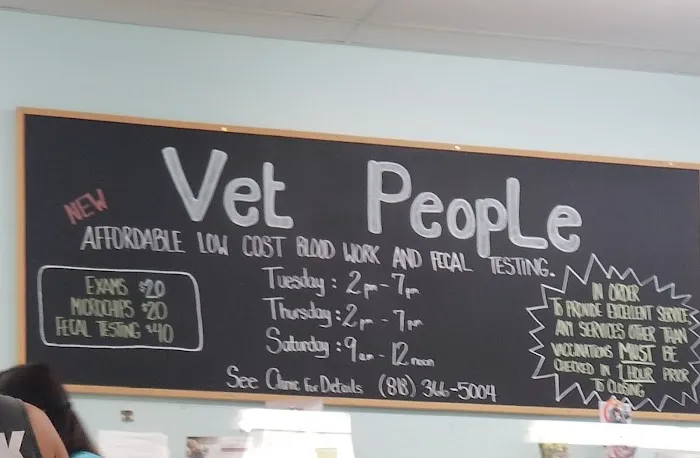 Vet People
NEW
AFFORDABLE LOW COST BLOOD WORK AND FECAL TESTING.
EXAMS $20
MICROCHIPS $20
FECAL TESTING $40
Tuesday : 2pm - 7pm
Thursday : 2pm - 7pm
Saturday : 9am - 12noon
See Clinic for Details (818) 366-5004
IN ORDER
TO PROVIDE EXCELLENT SERVICE
ANY SERVICES OTHER THAN
VACCINATIONS MUST BE
CHECKED IN 1 HOUR PRIOR
TO CLOSING